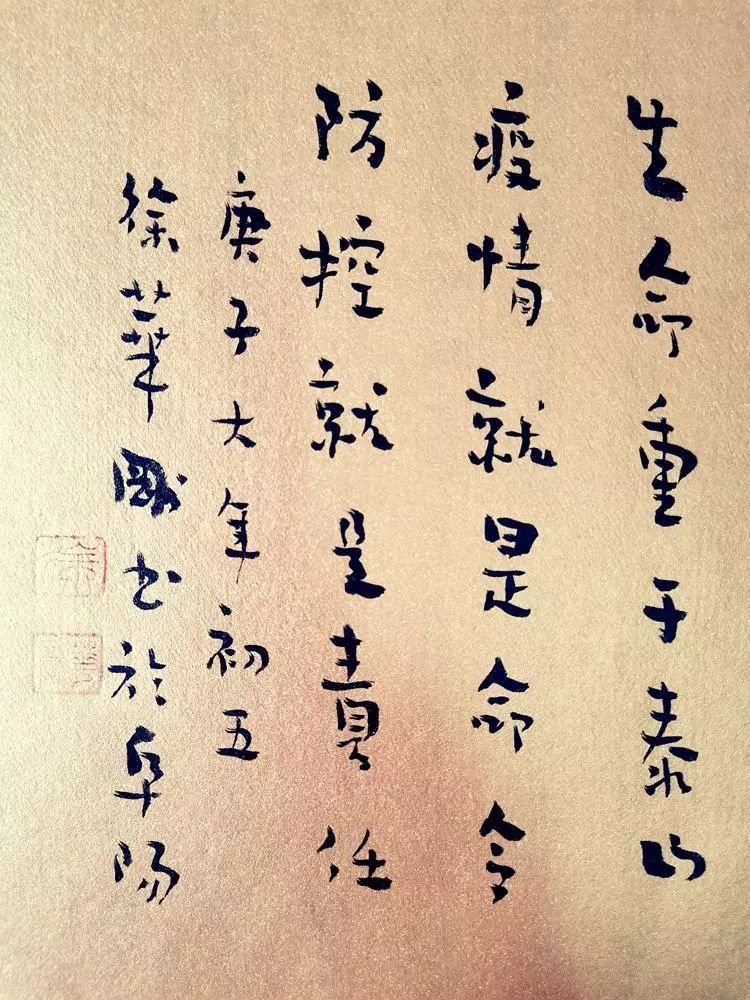 生命重于泰山
疫情就是命令
防控就是責任
庚子大年初五
徐華國书於阜陽